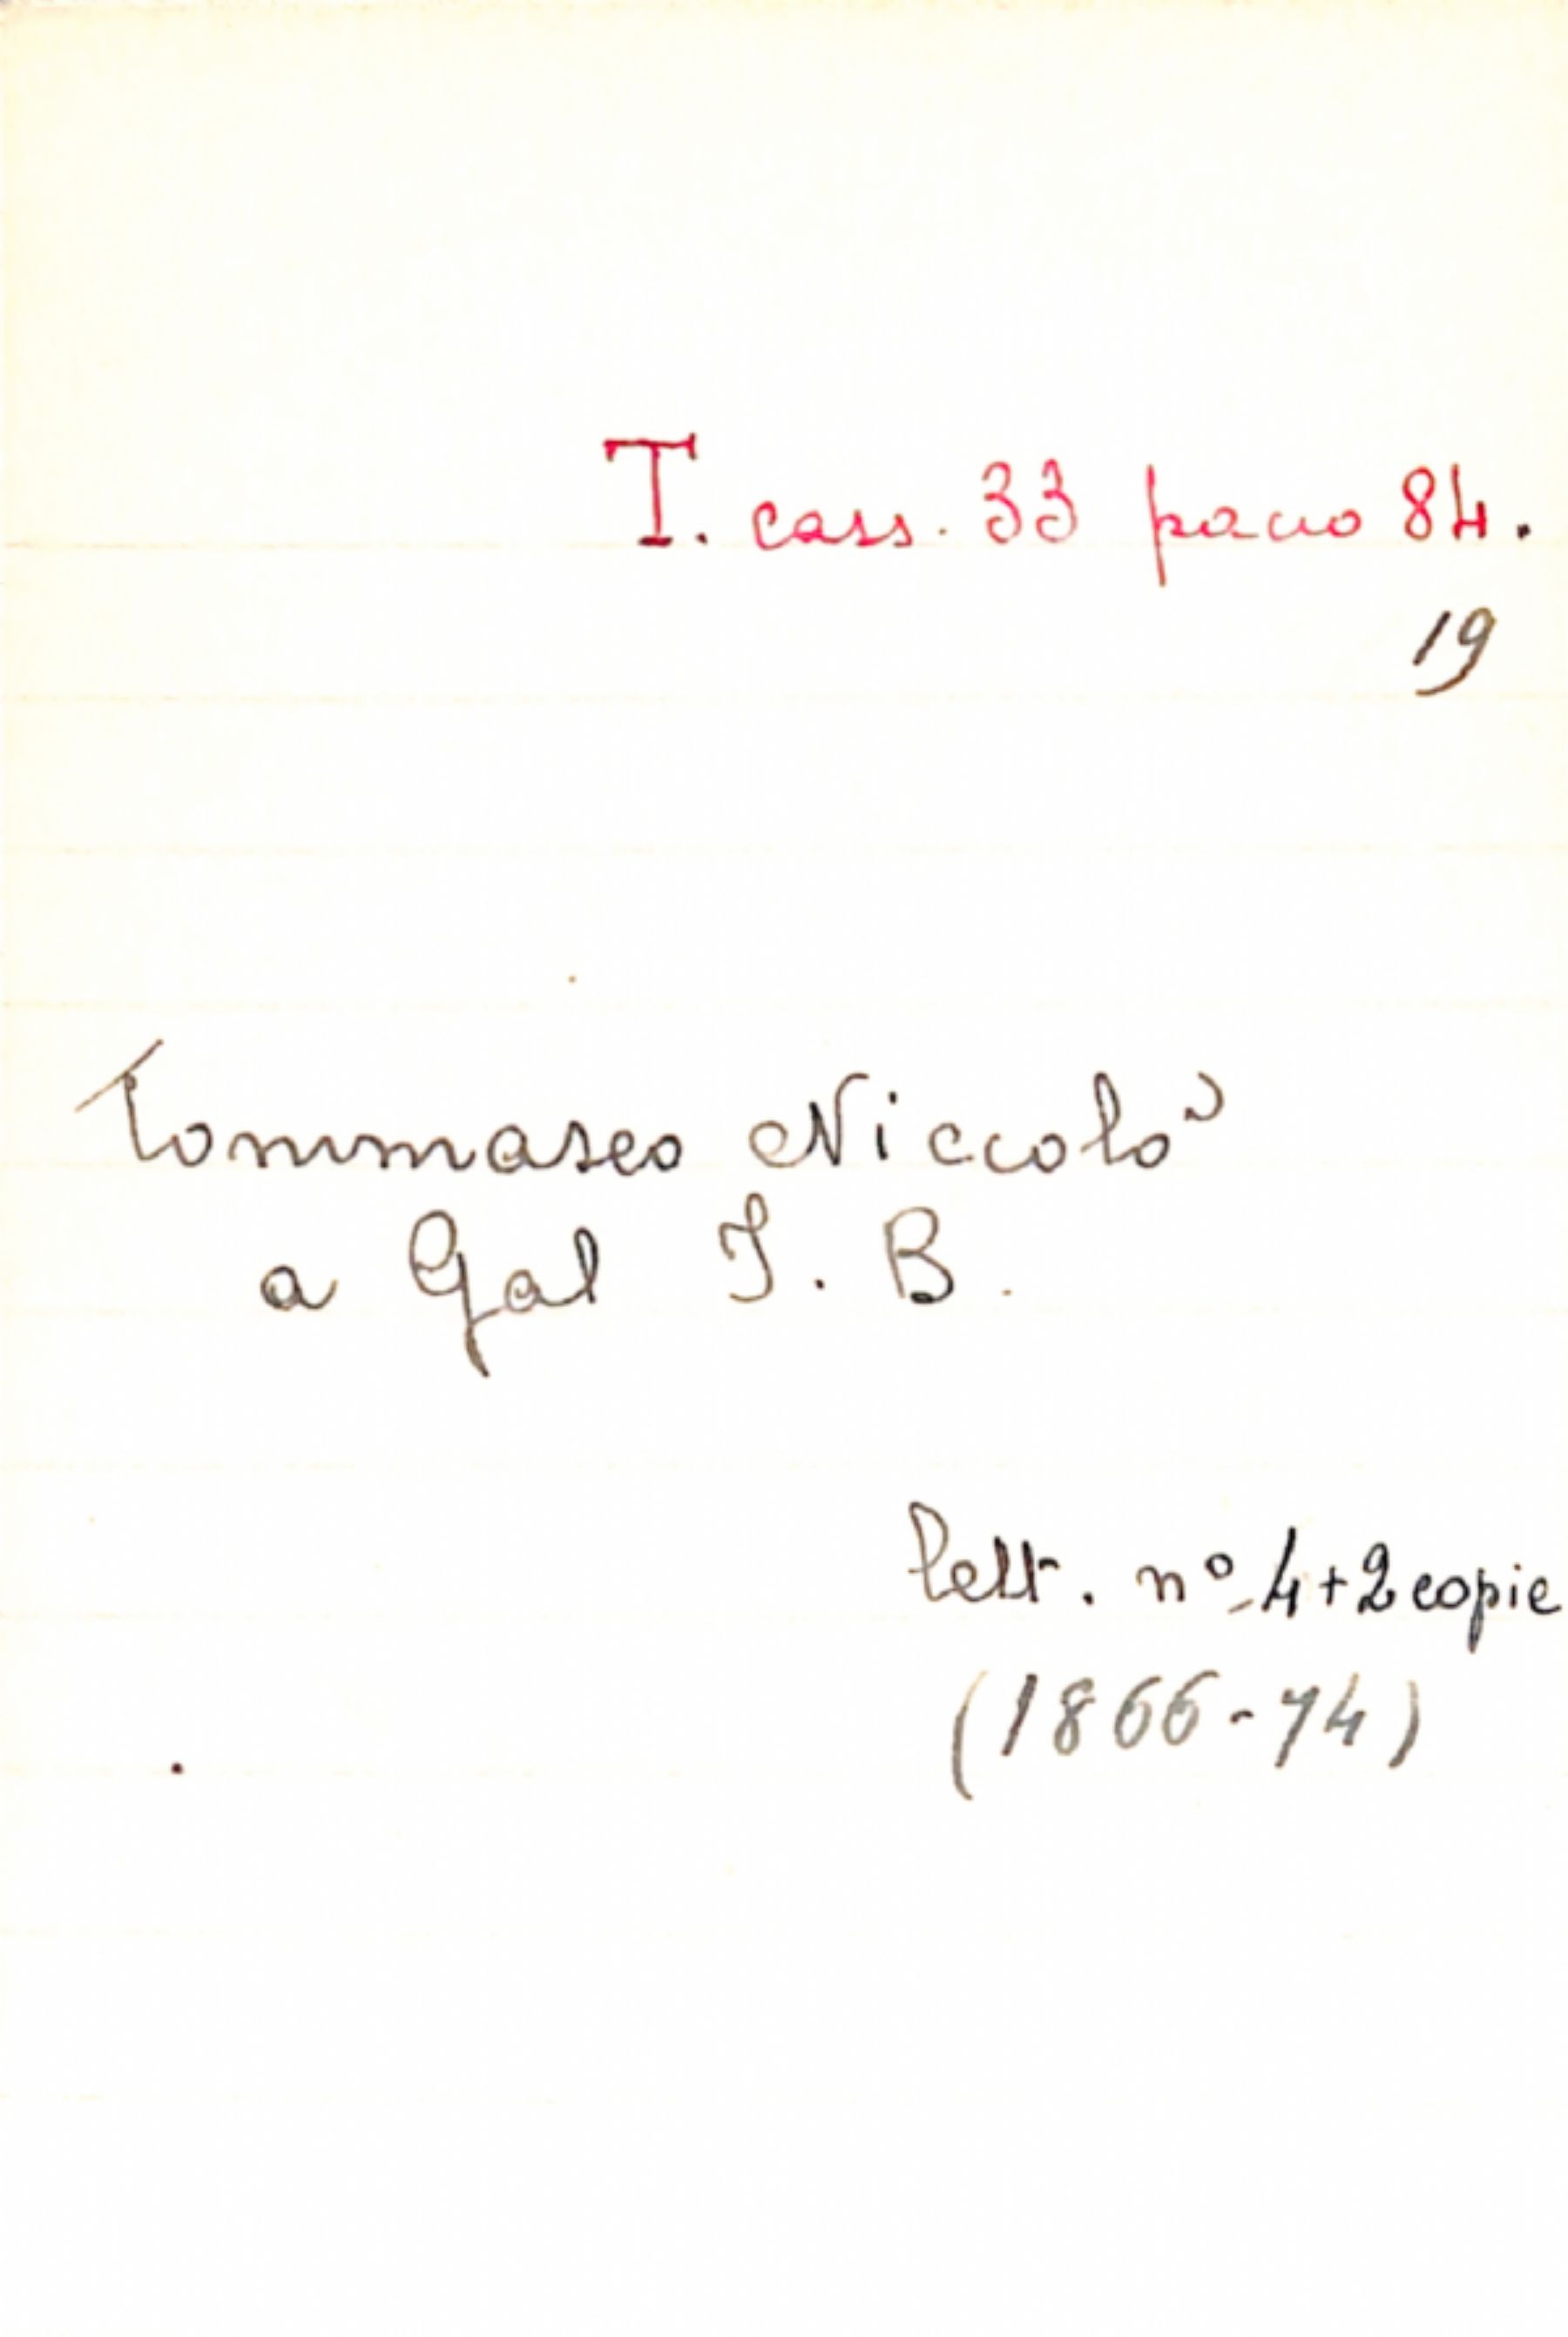 T. cass. 33 pacco 84.
19
Tommaseo Niccolò
a Gal I. B.
lett. nº 4+2 copie
(1866-74)